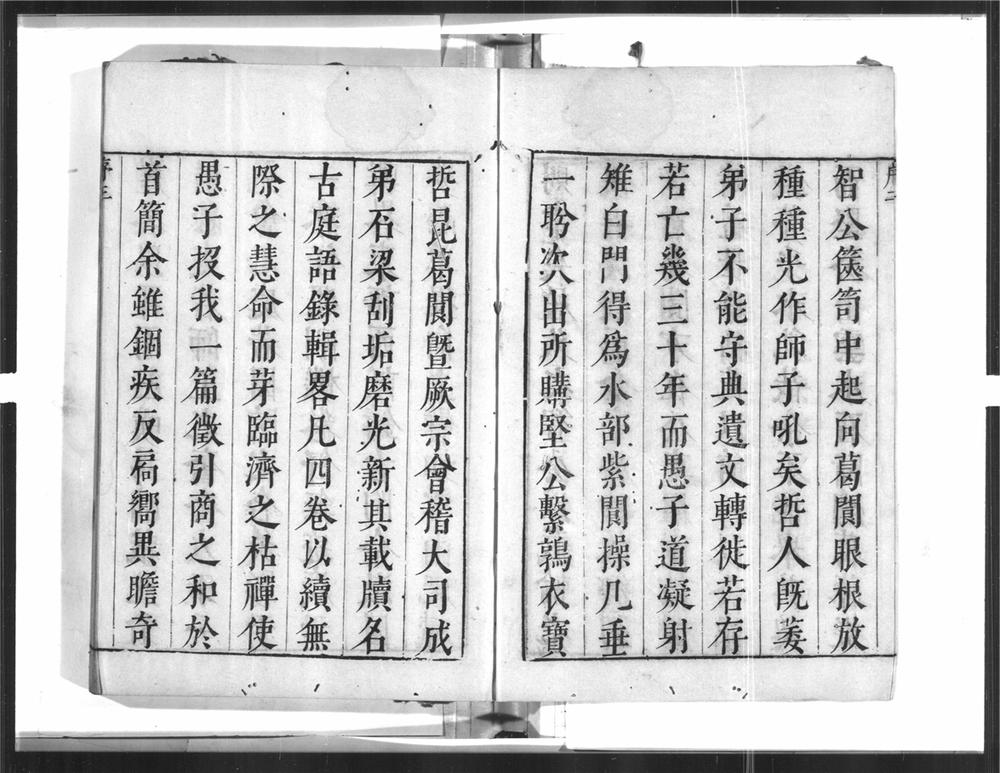 智公篋笥中起向葛閬眼根放
種種光作師子吼矣哲人旣萎
弟子不能守典遺文轉徙若存
若亡幾三十年而愚子道凝射
雉白門得爲水部紫閬操几垂
一聆次出所購堅公繫鶉衣寶
哲昆葛閬曁厥宗會稽大司成
弟石梁刮垢磨光新其載牘名
古庭語錄輯畧凡四卷以續無
際之慧命而芽臨濟之枯禪使
愚子投我一篇徵引商之和於
首簡余雖錮疾反扃嚮異瞻奇